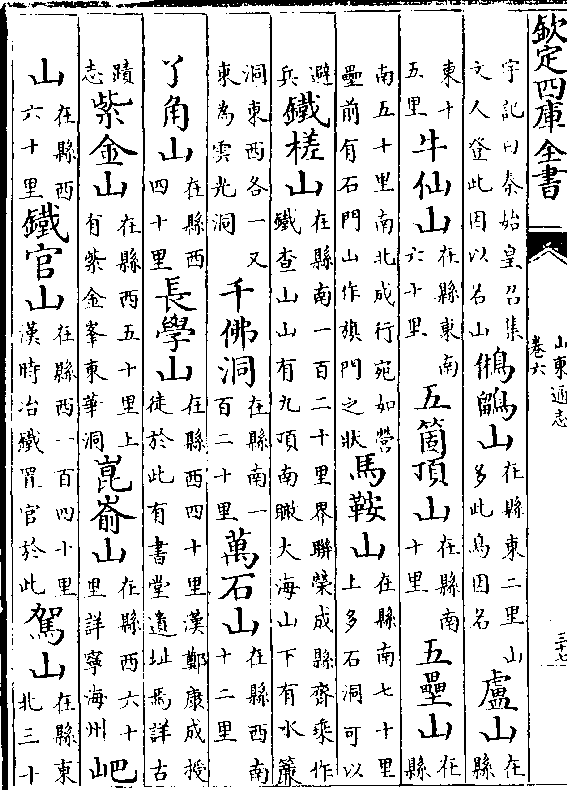 欽定四庫全書
山東通志
卷六
三十七
宇記曰秦始皇召集文人登此因以名山鵂鶹山在縣東二里山多此鳥因名盧山在縣
東十五里牛仙山在縣東南六十里五箇頂山在縣南十里五壘山在縣
南五十里南北成行宛如營壘前有石門山作旗門之狀馬鞍山在縣南七十里上多石洞可以
避兵鐵槎山在縣南一百二十里界聯榮成縣齊乘作鐵查山山有九頂南瞰大海山下有水簾
洞東西各一又東為雲光洞千佛洞在縣南一百二十里萬石山在縣西南十二里
丫角山在縣西四十里長學山在縣西四十里漢鄭康成授徒於此有書堂遺址焉詳古
蹟志紫金山在縣西五十里上有紫金峯東華洞崑嵛山在縣西六十里詳寧海州巴
山在縣西六十里鐵官山在縣西一百四十里漢時冶鐵置官於此駕山在縣東北三十